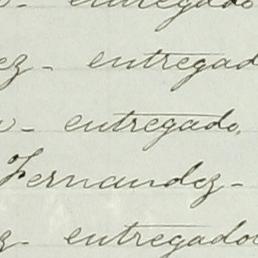 entregado
ez - entregad
- entregado,
Fernandez -
z - entregado